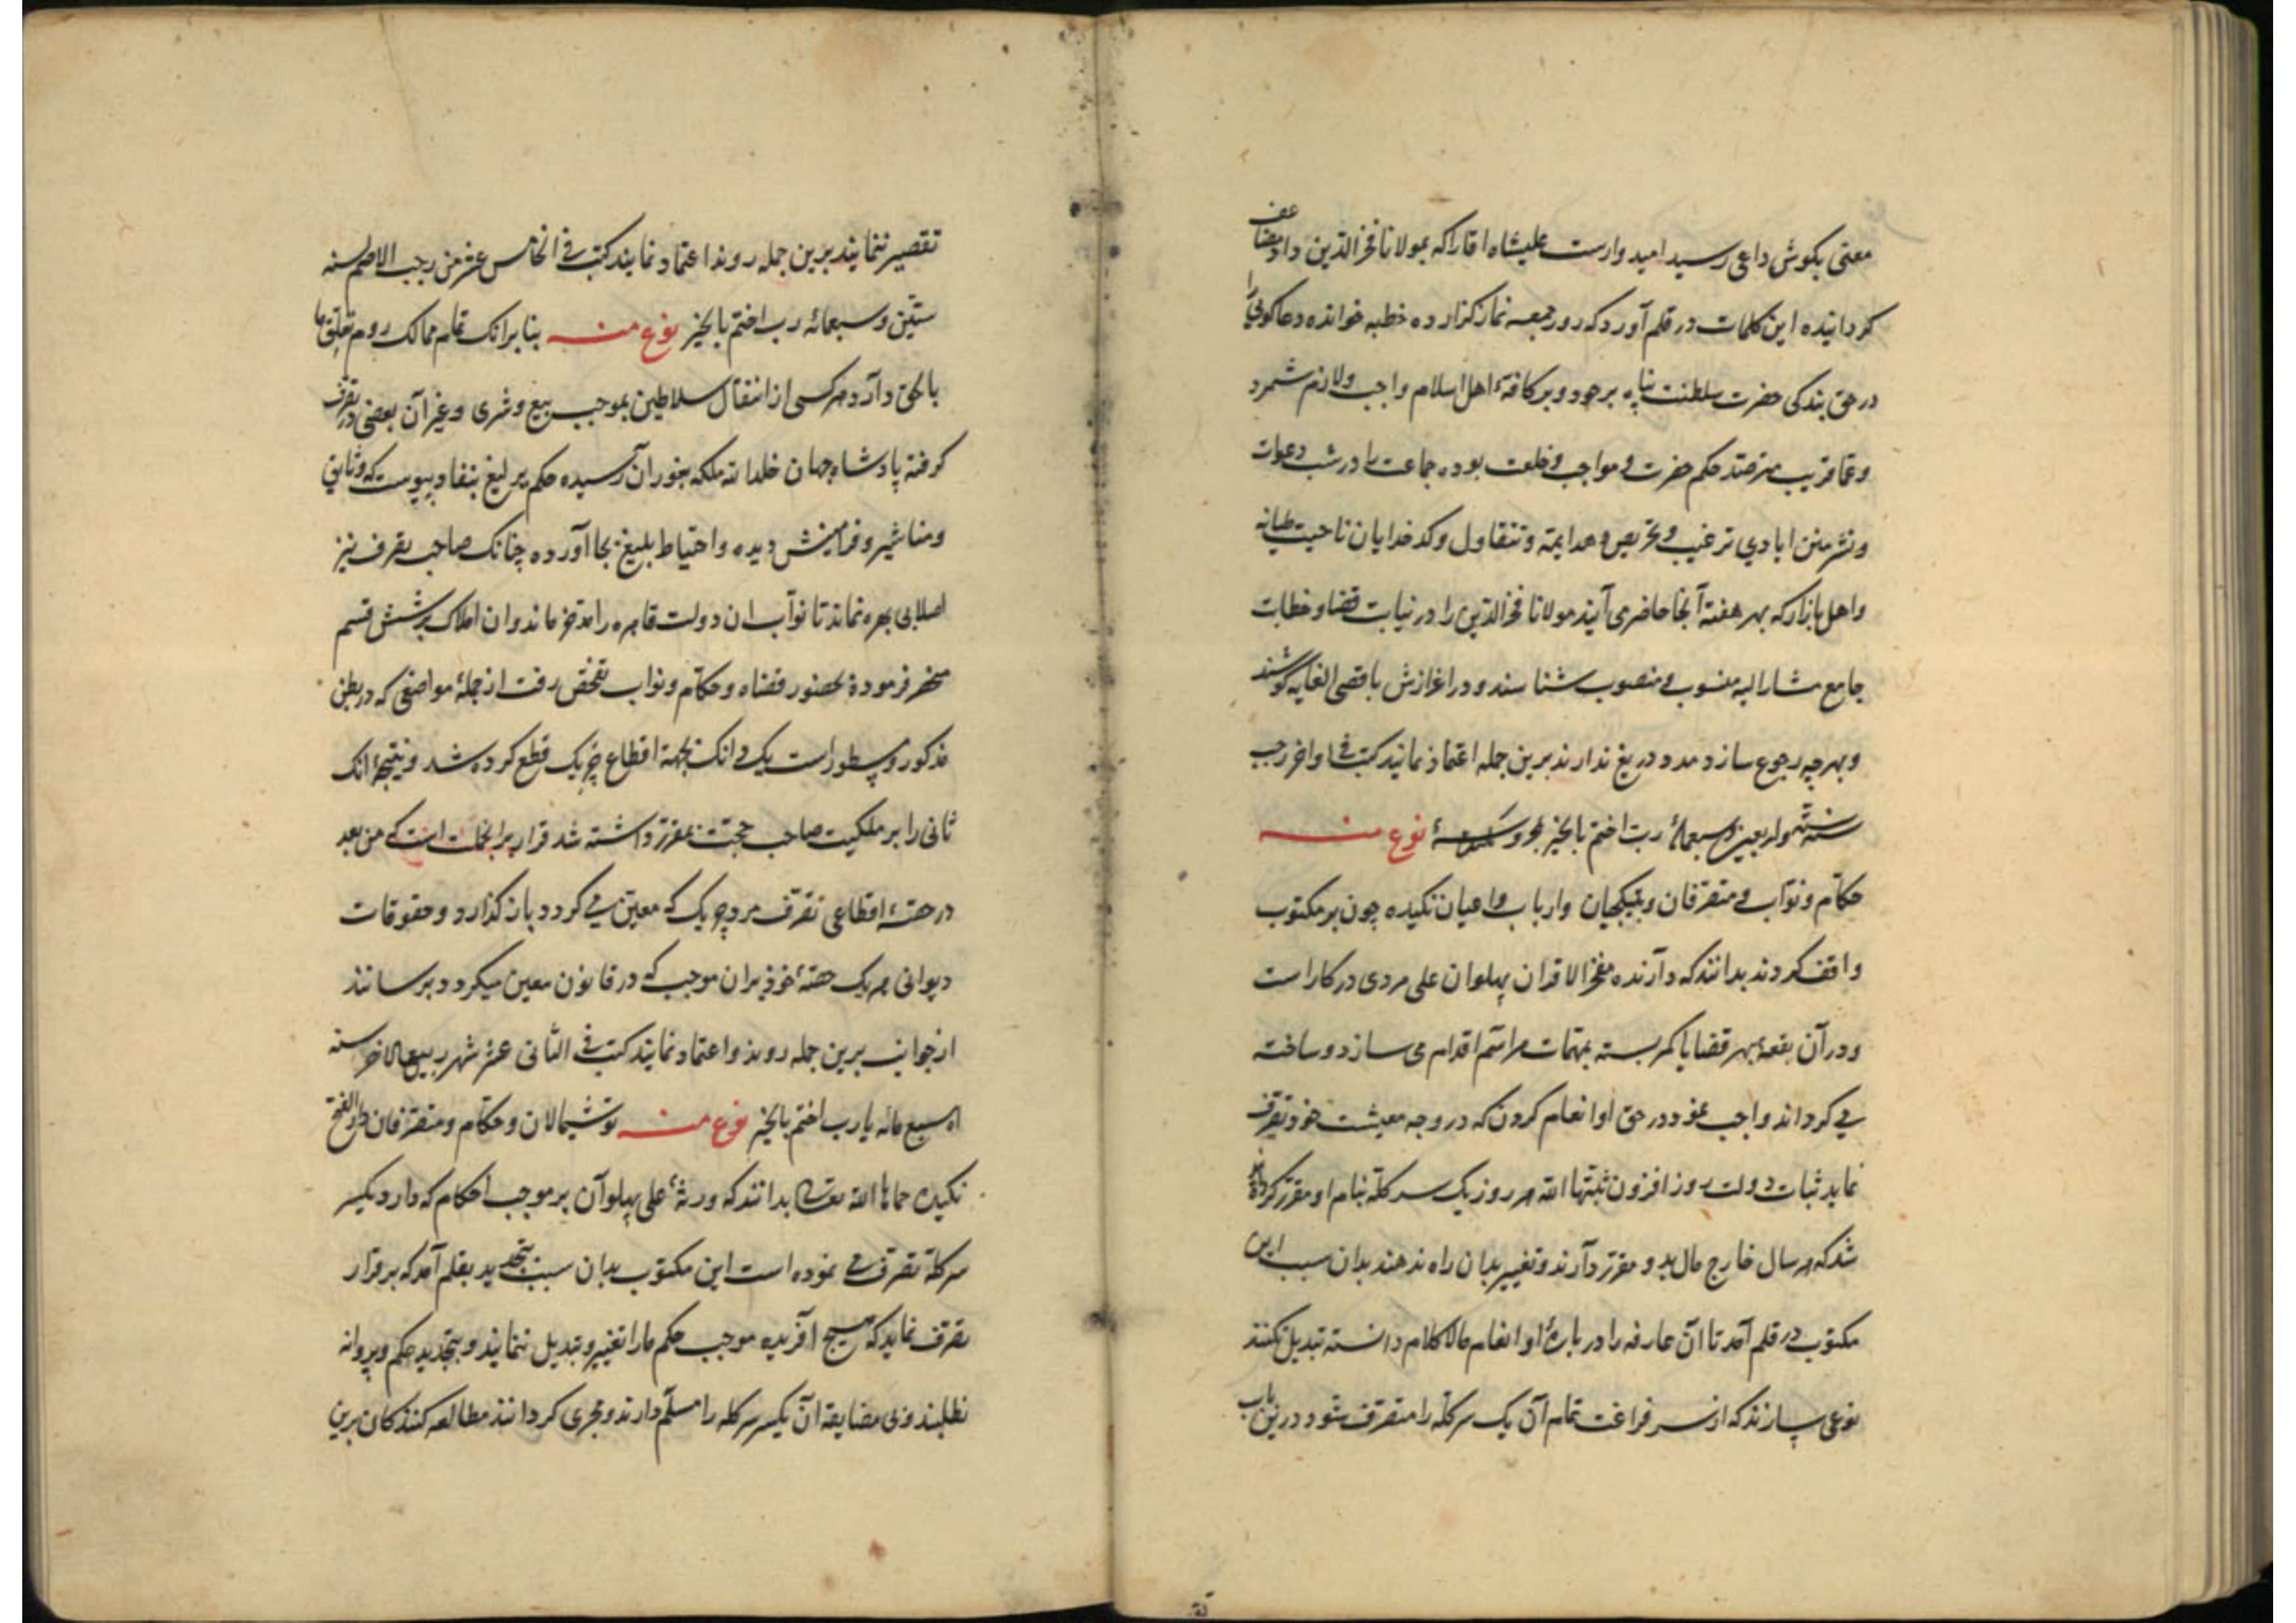 معنی بکوش داعی رسید امیدوارست علیشاه اقا را که بمولانا فخر الدین داد مضاعف
کردانیده این کلمات در قلم آورد که روز جمعه نماز کزارده خطبه خوانده دعاکویی را
در حق بندکی حضرت سلطنت پناه بر خود و بر کافۀ اهل اسلام واجب و لازم شمرد
و عما قریب مترصد حکم حضرت و مواجب و خلعت بوده جماعت را در شب دعوات
و نشر منن ایادی ترغیب و تحریص و هدایمة و کدخدایان ناحیت
و اهل بازار که بهر هفته آنجا حاضر می آیند مولانا فخر الدین را در نیابت قضا و خطابت
جامع مشار الیه منسوب و منصوب شناسند و در اعزازش باقصی الغایه کوشند
و بهرچه رجوع سازد مدد دریغ ندارند برین جمله اعتماذ نمایند کتب فی اواخر رجب
سنه واربعین و سبعمائه رب اختم بالخیر نوع منه
حکام و نواب و متصرفان و بتیکچیان و ارباب و اعیان نکیده چون بر مکتوب
واقف کردند بدانند که دارنده مفخر الاقران پهلوان علی مردی در کار است
و در آن بقعه بهر قضایا کمر بسته بمهمات مراسم اقدام می سازد و ساخته
می کرداند واجب نمود در حق او انعام کردن که در وجه معیشت خود تصرف
نماید ثبات دولت روز افزون ثبتها الله هر روز یک سر کله بنام او مقرر کردانیده
شد که هر سال خارج مال بدو مقرر دارند و تغییر بدان راه ندهند بدان سبب این
مکتوب در قلم آمد تا آن عارفه را در بارۀ او انعام مالاکلام دانسته تبدیل نکنند
نوعی سازند که از سر فراغت تمام آن یک سر کله را متصرف شود درین باب
تقصیر ننمایند برین جمله روند اعتماد نمایند کتب فی الخامس عشر من رجب الاصم لسنه
ستین و سبعمائه رب اختم بالخیر نوع منه بنابر انک تمام ممالک روم تعلق ما
بالحق دارد هرکسی از انتقال سلاطین بموجب بیع و شری و غیر آن بعضی در تصرف
کرفته پادشاه جهان خلد الله ملکه بغور آن رسیده حکم یرلیغ بنفاد پیوست که وثایق
و مناشیر و فرامینش دیده و احتیاط بلیغ بجا آورده چنانک صاحب تصرف نیز
اصلا بی بهره نماند تا نواب ان دولت قاهره را مقرر ماند و ان املاک بر شش قسم
فرموده بحضور قضاه و حکام و نواب تفحص رفت از جملۀ مواضعی که در بطن
مذکور و مسطور است یک دانک بجهة اقطاع چریک قطع کرده شد و نتیجۀ انک
ثانی را بر ملکیت صاحب حجت مقرر داشته شد قرار بر انجملت است که من بعد
در حصۀ اقطاعی تصرف مرد چریک که معین می کردد باز کذارد و حقوقات
دیوانی هر یک حصۀ خود بران موجب که در قانون معین میکردد برسانند
از جوانب برین جمله روند و اعتماد نمایند کتب فی الثانی عشر شهر ربیع الاخر سنه
سبع مائه یا رب اختم بالخیر نوع منه توشیمالان و حکام و متصرفان دار الفتح
نکیده حماها الله تعالی بدانند که ورثۀ علی پهلوان بر موجب احکام که دارد یکسر
سر کله تصرف می نموده است این مکتوب بدان سبب بتجدید بقلم آمد که برقرار
تصرف نماید که هیچ آفریده موجب حکم ما را تغییر و تبدیل ننمایند و بتجدید حکم و پروانه
نطلبند و بی مضایقه آن یکسر سر کله را مسلم دارند و مجری کردانند مطالعه کنندکان برین